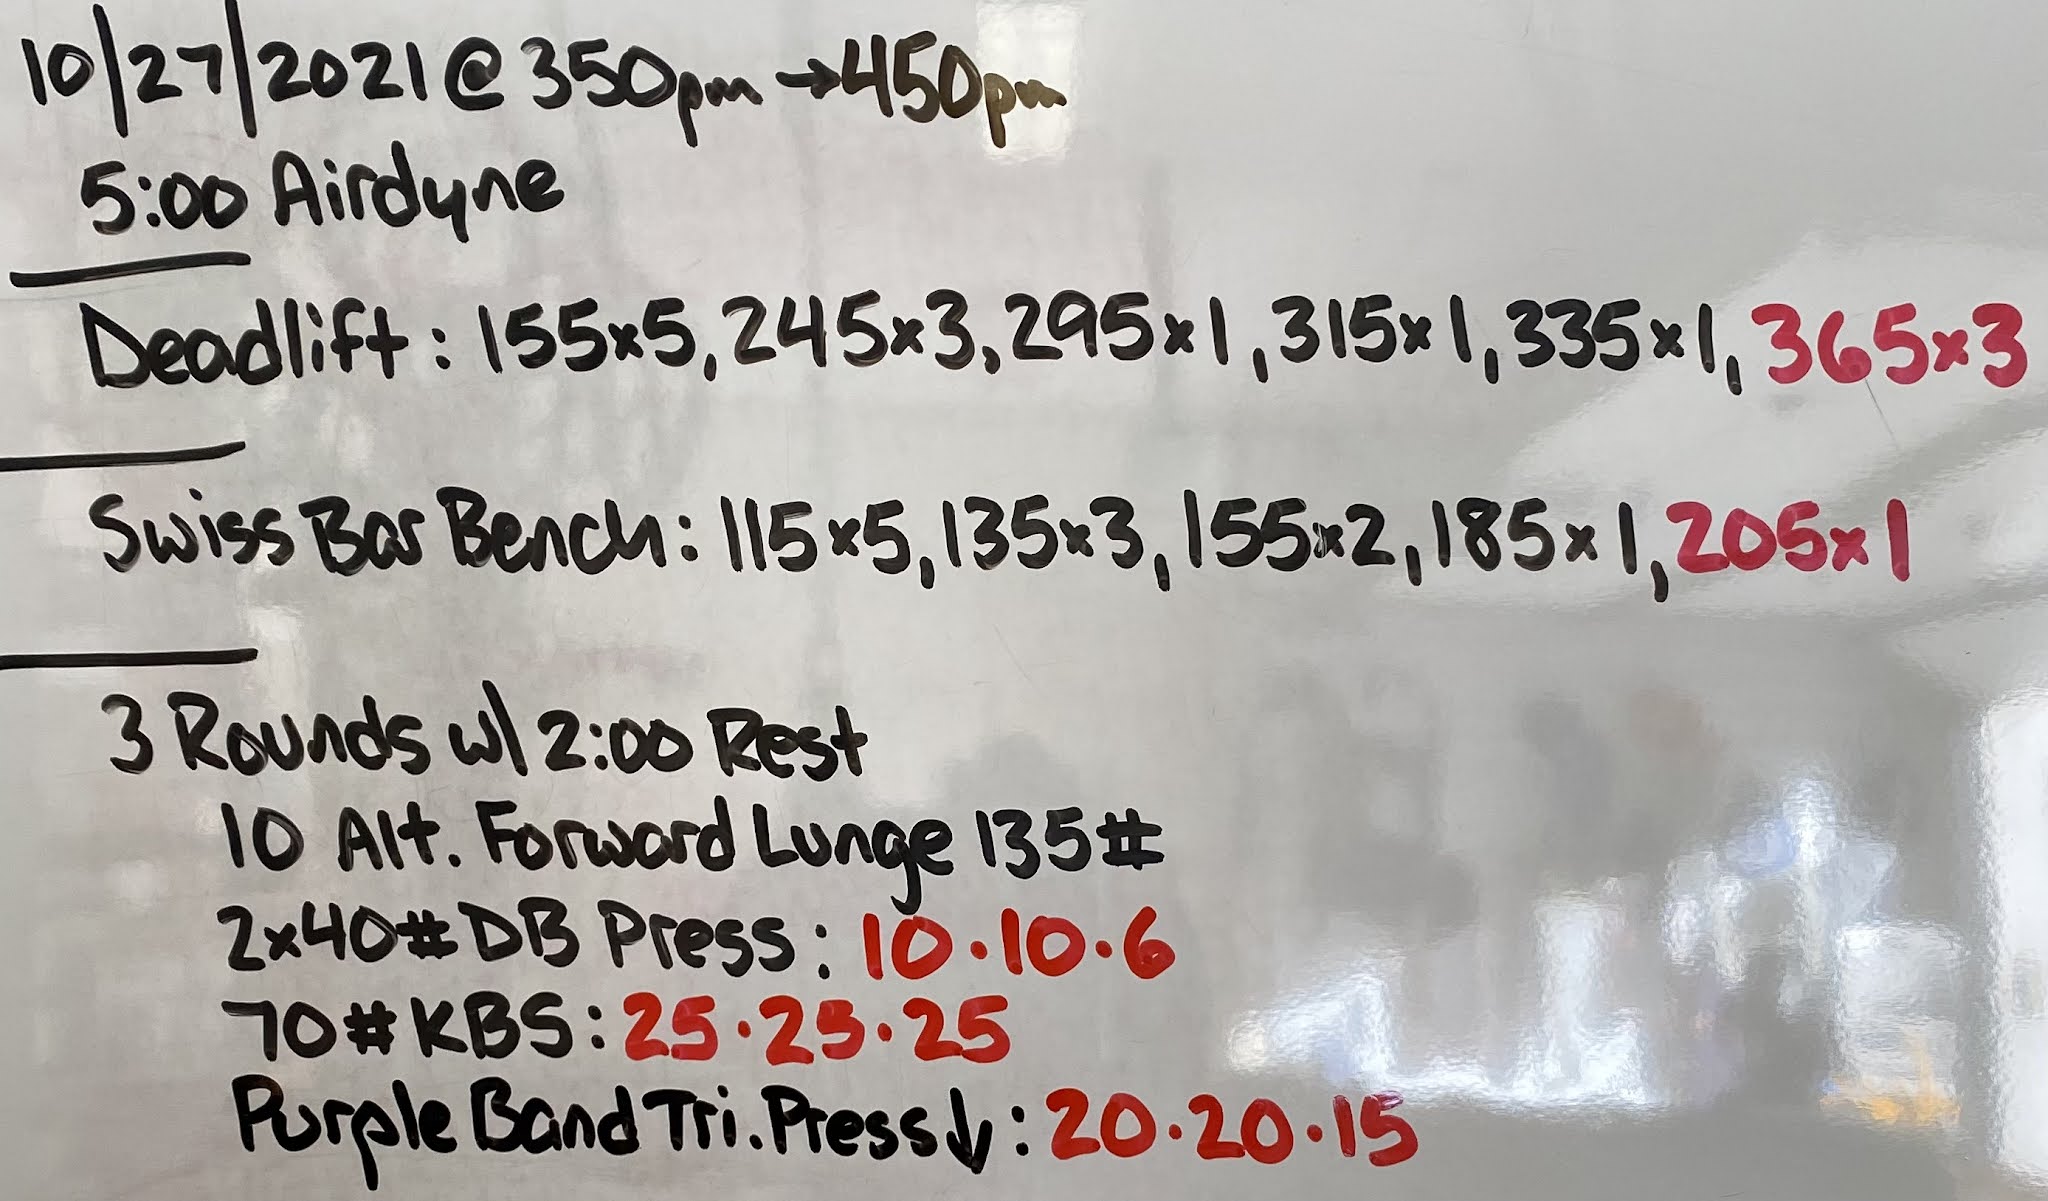 10/27/2021 @ 350pm → 450pm
5:00 Airdyne
Deadlift: 155x5, 245x3, 295x1, 315x1, 335x1, 365x3
Swiss Bar Bench: 115x5, 135x3, 155x2, 185x1, 205x1
3 Rounds w/ 2:00 Rest
10 Alt. Forward Lunge 135#
2x40# DB Press: 10·10·6
70# KBS: 25·25·25
Purple Band Tri. Press ↓: 20·20·15